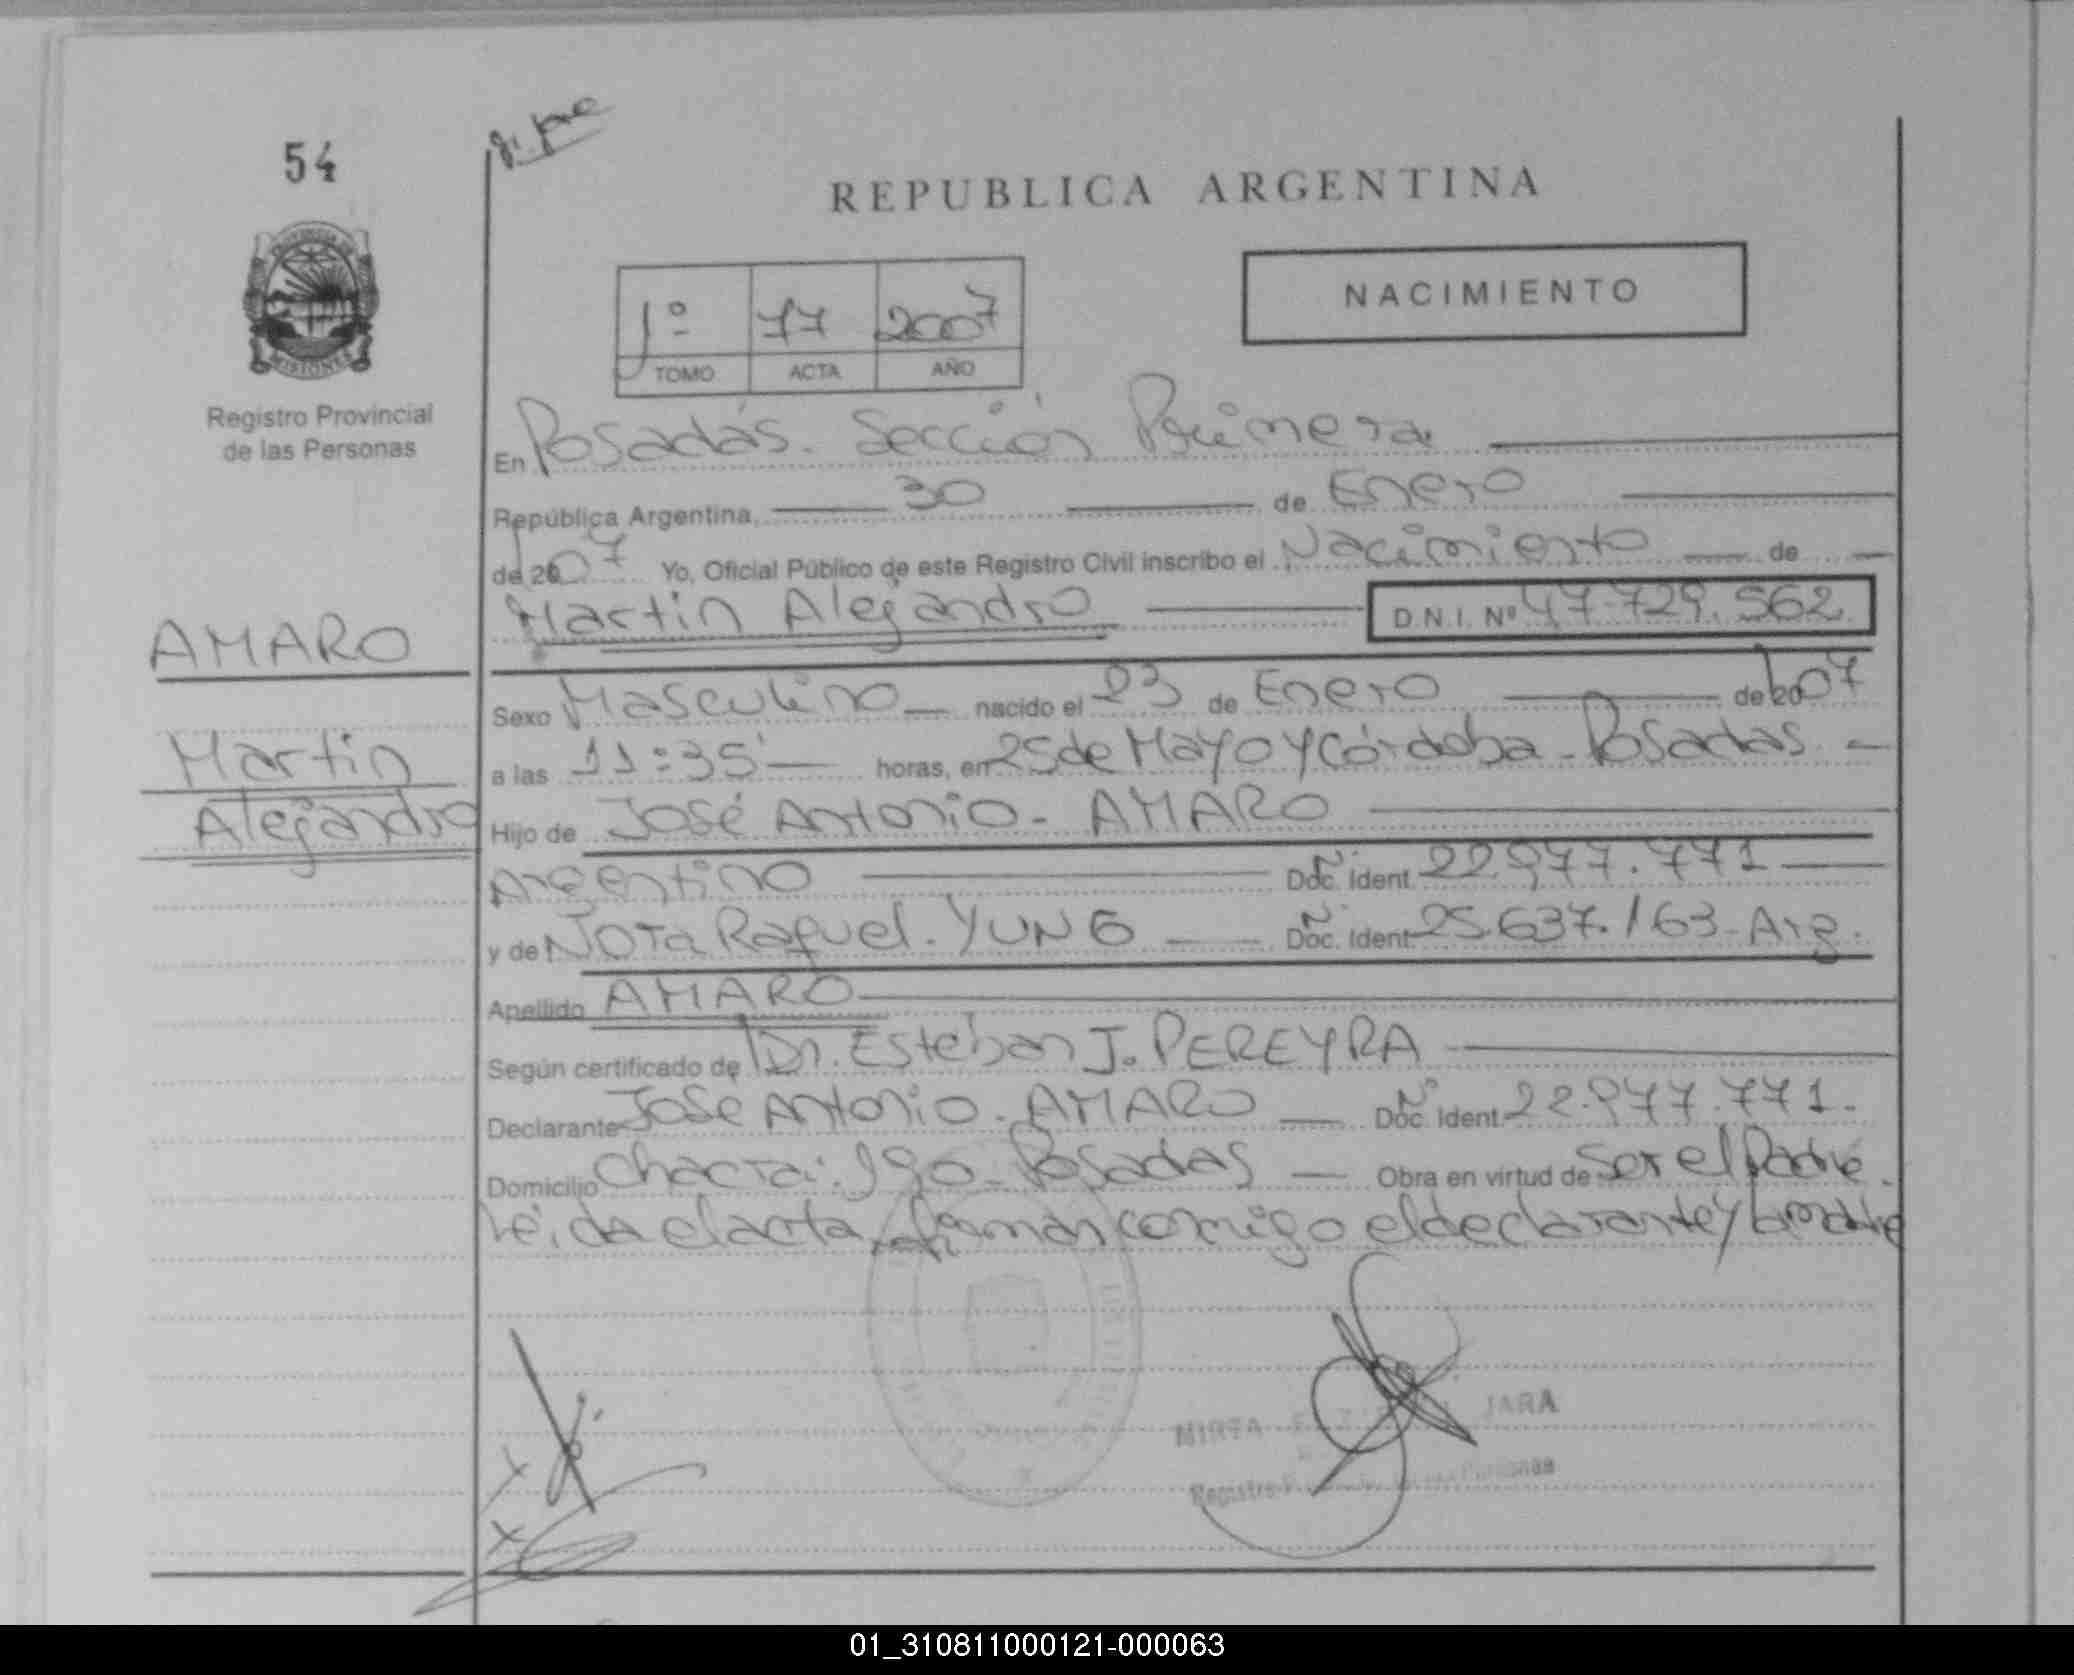 54
REPUBLICA ARGENTINA
NACIMIENTO
1º 77 2007
TOMO ACTA AÑO
Registro Provincial
de las Personas
En Posadas. Sección Primera
República Argentina, 30 de Enero
de 2007 Yo, Oficial Público de este Registro Civil inscribo el Nacimiento de
Martin Alejandro D.N.I. Nº 47.729.562
AMARO
Martin
Alejandro
Sexo Masculino nacido el 23 de Enero de 2007
a las 11:35 horas, en 25 de Mayo y Córdoba - Posadas
Hijo de José Antonio - AMARO
Argentino Doc. Ident. Nº 22.977.771
y de Nora Raquel. YUNG Doc. Ident. Nº 25.637.163 - Arg.
Apellido AMARO
Según certificado de Dr. Esteban J. PEREYRA
Declarante José Antonio - AMARO Doc. Ident. Nº 22.977.771.
Domicilio Chacra: 190 - Posadas Obra en virtud de Ser el Padre.
Leida el acta, firman conmigo el declarante y la madre
MIRTA JARA
Registro Personas
01_310811000121-000063